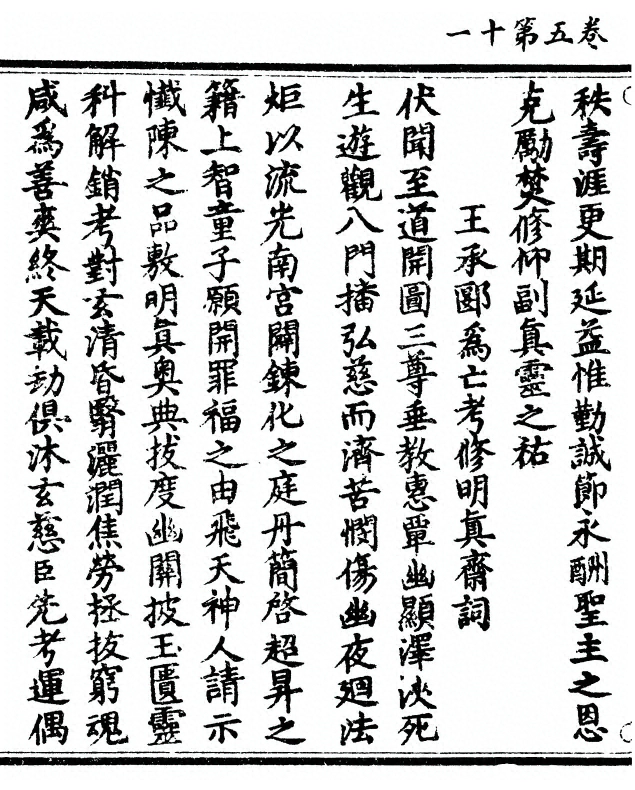 卷五第十一
秩壽涯更期延益惟勤誠節永酬聖主之恩
克勵焚修仰副眞靈之祐
王承郾爲亡考修明眞齋詞
伏聞至道開圖三尊垂教惠覃幽顯澤浹死
生遊觀八門播弘慈而濟苦憫傷幽夜廻法
炬以流光南宮闢鍊化之庭丹簡啓超昇之
籍上智童子願開罪福之由飛天神人請示
懺陳之品敷明眞奧典拔度幽關披玉匱靈
科解銷考對玄清昏翳灑潤焦勞拯拔窮魂
咸爲善爽終天載劫俱沐玄慈臣先考運偶